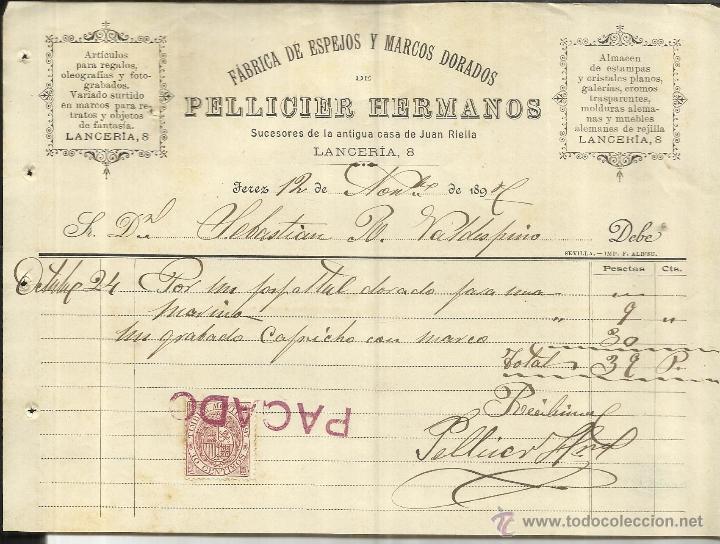 Artículos
para regalos,
oleografías y foto-
grabados.
Variado surtido
en marcos para re-
tratos y objetos
de fantasía.
LANCERÍA, 8
FÁBRICA DE ESPEJOS Y MARCOS DORADOS
DE
PELLICIER HERMANOS
Sucesores de la antigua casa de Juan Riella
LANCERÍA, 8
Almacen
de estampas
y cristales planos,
galerías, cromos
trasparentes,
molduras alema-
nas y muebles
alemanes de rejilla
LANCERÍA, 8
Jerez 12 de Nonbre de 189
Sr. Dn Sebastian B. Valdespino Debe
SEVILLA.—IMP. F. ALBÑU.
Pesetas Cts.
Octubre 24 Por un dorado para una
marina " 9 "
un grabado Capricho con marco 30
Total 39 P.
Recibimos
Pellicier Hnos
PAGADO
TIMBRE MOVIL
10 CENTIMOS
todocoleccion.net
www.todocoleccion.net